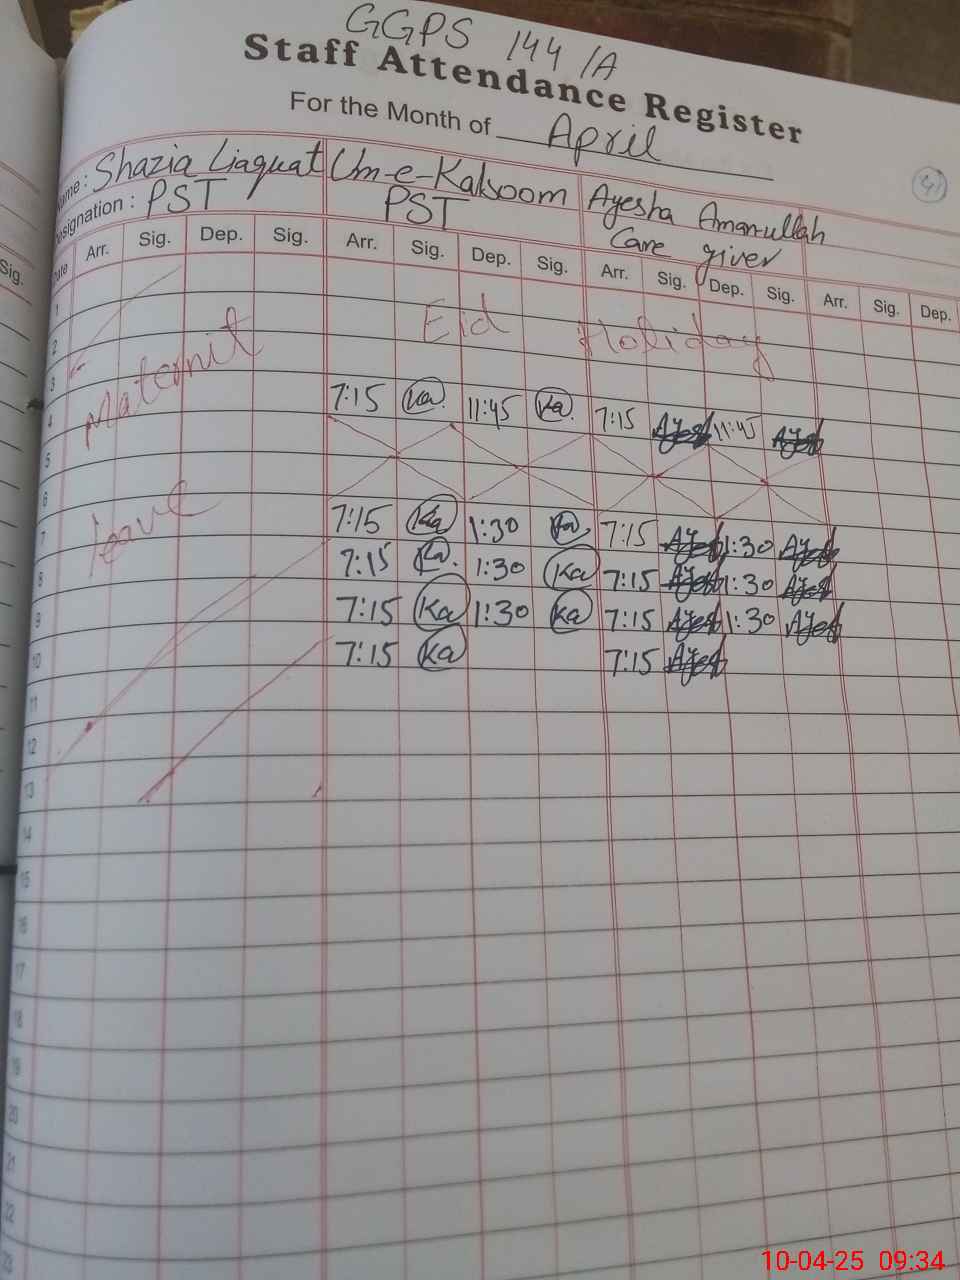 GGPS 144/A
Staff Attendance Register
For the Month of April
41
Name : Shazia Liaquat Um-e-Kalsoom Ayesha Amanullah
Designation : PST PST Care giver
Date Arr. Sig. Dep. Sig. Arr. Sig. Dep. Sig. Arr. Sig. Dep. Sig. Arr. Sig. Dep.
Sig.
1
2 Eid Holiday
3 Maternit
4 7:15 Ka 11:45 Ka 7:15 Ayesh 11:45 Ayesh
5
6 leave
7 7:15 Ka 1:30 Ka 7:15 Ayesh 1:30 Ayesh
8 7:15 Ka 1:30 Ka 7:15 Ayesh 1:30 Ayesh
9 7:15 Ka 1:30 Ka 7:15 Ayesh 1:30 Ayesh
10 7:15 Ka 7:15 Ayesh
11
12
13
14
15
16
17
18
19
20
21
22
23
10-04-25 09:34